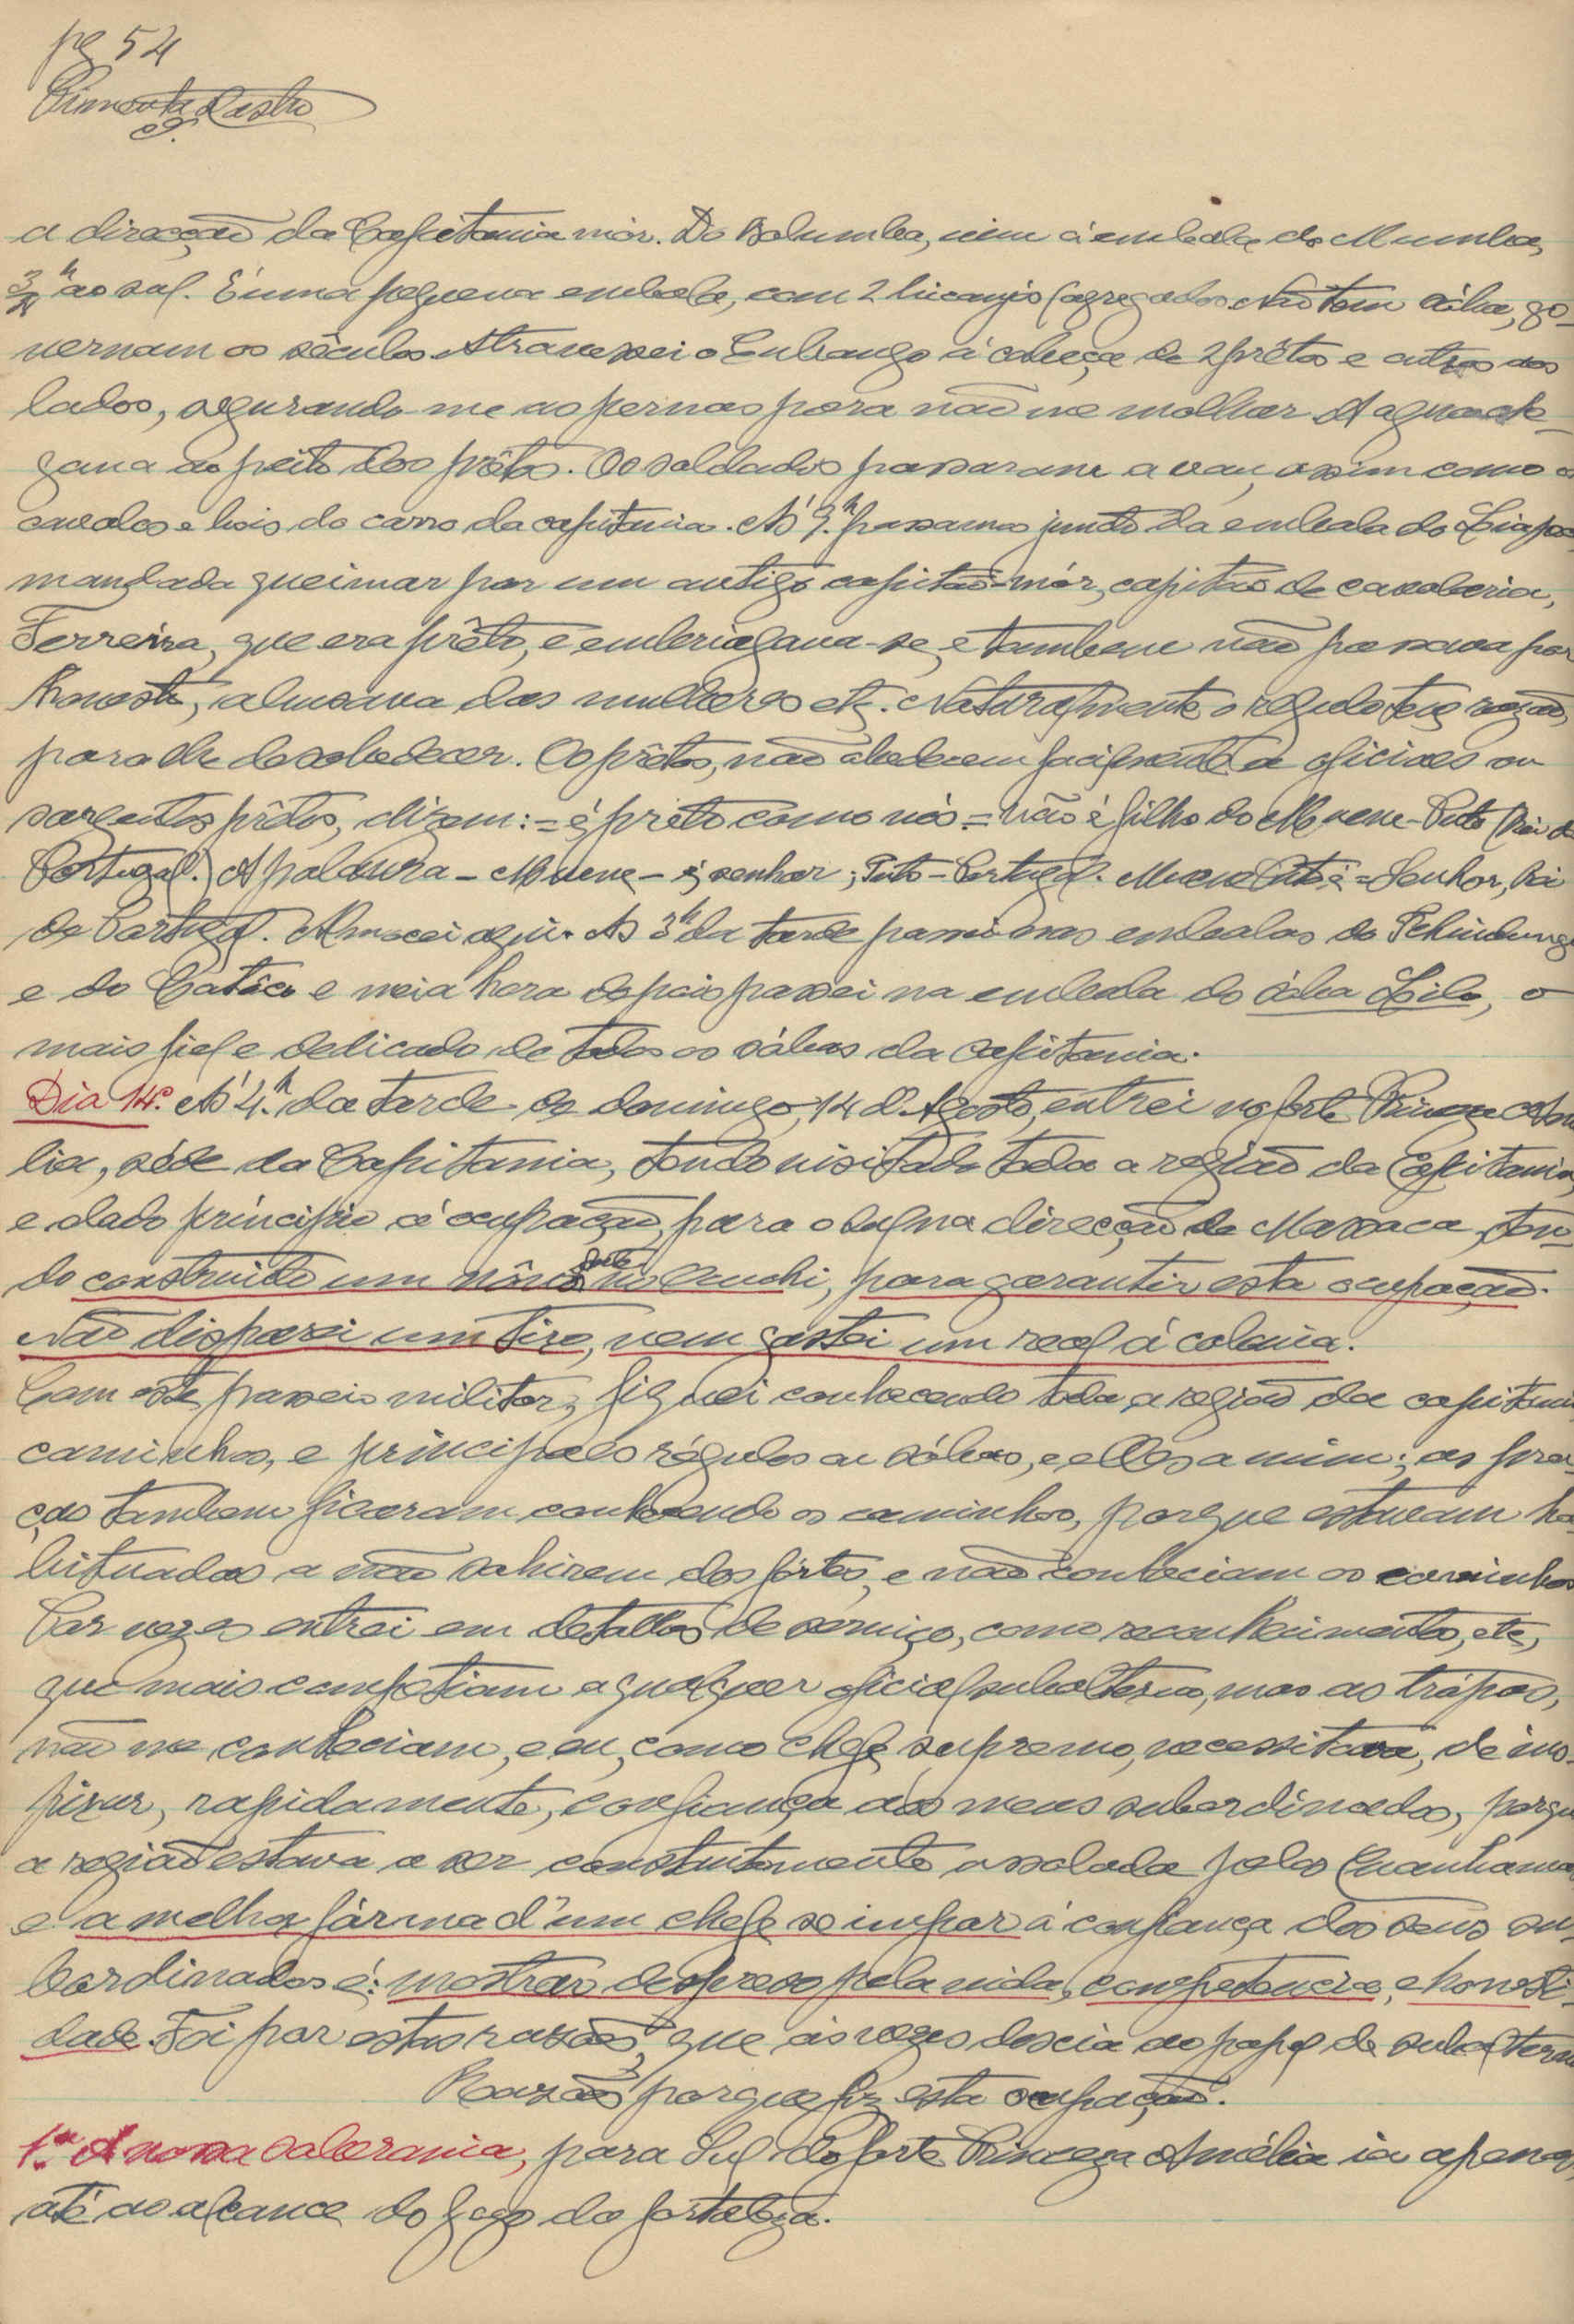 pg 54
Pimenta Castro
a direcção da Capitania mór. Do Balumba, vim á embala do Mumba,
3/4 h ao sul. É uma pequena embala, com 2 bicanjos (agregados. Não tem sóba, go-
vernam os séculos. Atravessei o Cubango á cabeça de 2 prêtos e outros aos
lados, segurando-me as pernas para não me molhar. A agua che-
gava ao peito dos prêtos. Os soldados passaram a vau, assim como os
cavalos e bois do carro da capitania. Ás 9.h passamos junto da embala do
mandada queimar por um antigo capitão-mór, capitão de cavalaria,
Ferreira, que era prêto, e embriagava-se, e tambem não passava por
honesto, abusava das mulheres etc. Naturalmente o régulo teve razão
para lhe desobedecer. Os prêtos, não obedecem facilmente a oficiaes ou
sargentos prêtos, dizem: = é prêto como nós = não é filho do Muene-Puto (Rei de
Portugal.) A palavra - Muene - é senhor; Puto - Portugal. Muene Puto é = Senhor, Rei
de Portugal. Almocei aqui. Ás 3h da tarde passei nas embalas do
e do Catôco e meia hora depois passei na embala do sóba Lilo, o
mais fiel e dedicado de todos os sóbas da capitania.
Dia 14º. Ás 4.h da tarde de domingo, 14 d'Agosto, entrei no forte Princeza Amé-
lia, séde da Capitania, tendo visitado toda a região da Capitania,
e dado princípio á ocupação, para o sul na direcção de Massaca, ten-
do construido um nôvo forte no Cuchi, para garantir esta ocupação.
Não disparei um tiro, nem gastei um real á colonia.
Com este passeio militar, fiquei conhecendo toda a região da capitania
caminhos, e principaes régulos ou sóbas, e elles a mim; as pra-
ças tambem ficaram conhecendo os caminhos, porque estavam ha-
bituados a não sahirem dos fórtes, e não conheciam os caminhos
Por vezes entrei em detalhes de serviço, como reconhecimentos, etc,
que mais competiam a qualquer oficial subalterno, mas as trópas,
não me conheciam, e eu, como chefe supremo, necessitava, de ins-
pirar, rapidamente, confiança aos meus subordinados, porque
a região estava a ser constantemente assolada pelos Cuanhamas
e a melhor fórma d'um chefe se impor á confiança dos seus su-
bordinados é: mostrar despreso pela vida, competencia, e honesti-
dade. Foi por estas razões, que ás vezes descia ao papel de subalterno
Razões porque fiz esta ocupação.
1.ª A nossa soberania, para Sul do forte Princeza Amélia ia apenas
até ao alcance do fogo da fortaleza.